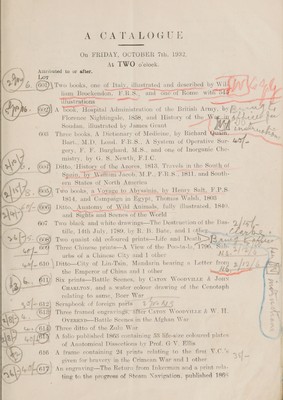 A CATALOGUE
On FRIDAY, OCTOBER 7th, 1932,
At TWO o'clock.
Attributed to or after.
Lot
601 Two books, one of Italy, illustrated and described by Wil-
liam Brockendon, F.R.S., and one of Rome with
illustrations
602 A book, Hospital Administration of the British Army, by
Florence Nightingale, 1858, and History of the War in
Soudan, illustrated by James Grant
603 Three books, A Dictionary of Medicine, by Richard Quain,
Bart., M.D. Lond. F.R.S., A System of Operative Sur-
gery, F. F. Burghard, M.S., and one of Inorganic Che-
mistry, by G. S. Newth, F.I.C.
604 Ditto, History of the Azores, 1813, Travels in the South of
Spain, by William Jacob, M.P., F.R.S., 1811, and South-
ern States of North America
605 Two books, a Voyage to Abyssinia, by Henry Salt, F.P.S.
1814, and Campaign in Egypt, Thomas Walsh, 1803
606 Ditto, Anatomy of Wild Animals, fully illustrated, 1840,
and Sights and Scenes of the World
607 Two black and white drawings—The Destruction of the Bas-
tille, 14th July, 1789, by R. H. Bate, and 1 other
608 Two quaint old coloured prints—Life and Death
609 Three Chinese prints—A View of the Poo-ta-la, 1796,
aris of a Chinese City and 1 other
610 Ditto—City of Lin-Tsin, Mandarin bearing a Letter from
the Emperor of China and 1 other
611 Six prints—Battle Scenes, by Caton Woodville & John
Charlton, and a water colour drawing of the Cenotaph
relating to same, Boer War
612 Scrapbook of foreign ports
613 Three framed engravings, after Caton Woodville & W. H.
Overend—Battle Scenes in the Afghan War
614 Three ditto of the Zulu War
615 A folio published 1865 containing 35 life-size coloured plates
of Anatomical Dissections by Prof. G. V. Ellis
616 A frame containing 24 prints relating to the first V.C.'s
given for bravery in the Crimean War and 1 other
617 An engraving—The Return from Inkerman and a print rela-
ting to the progress of Steam Navigation, published